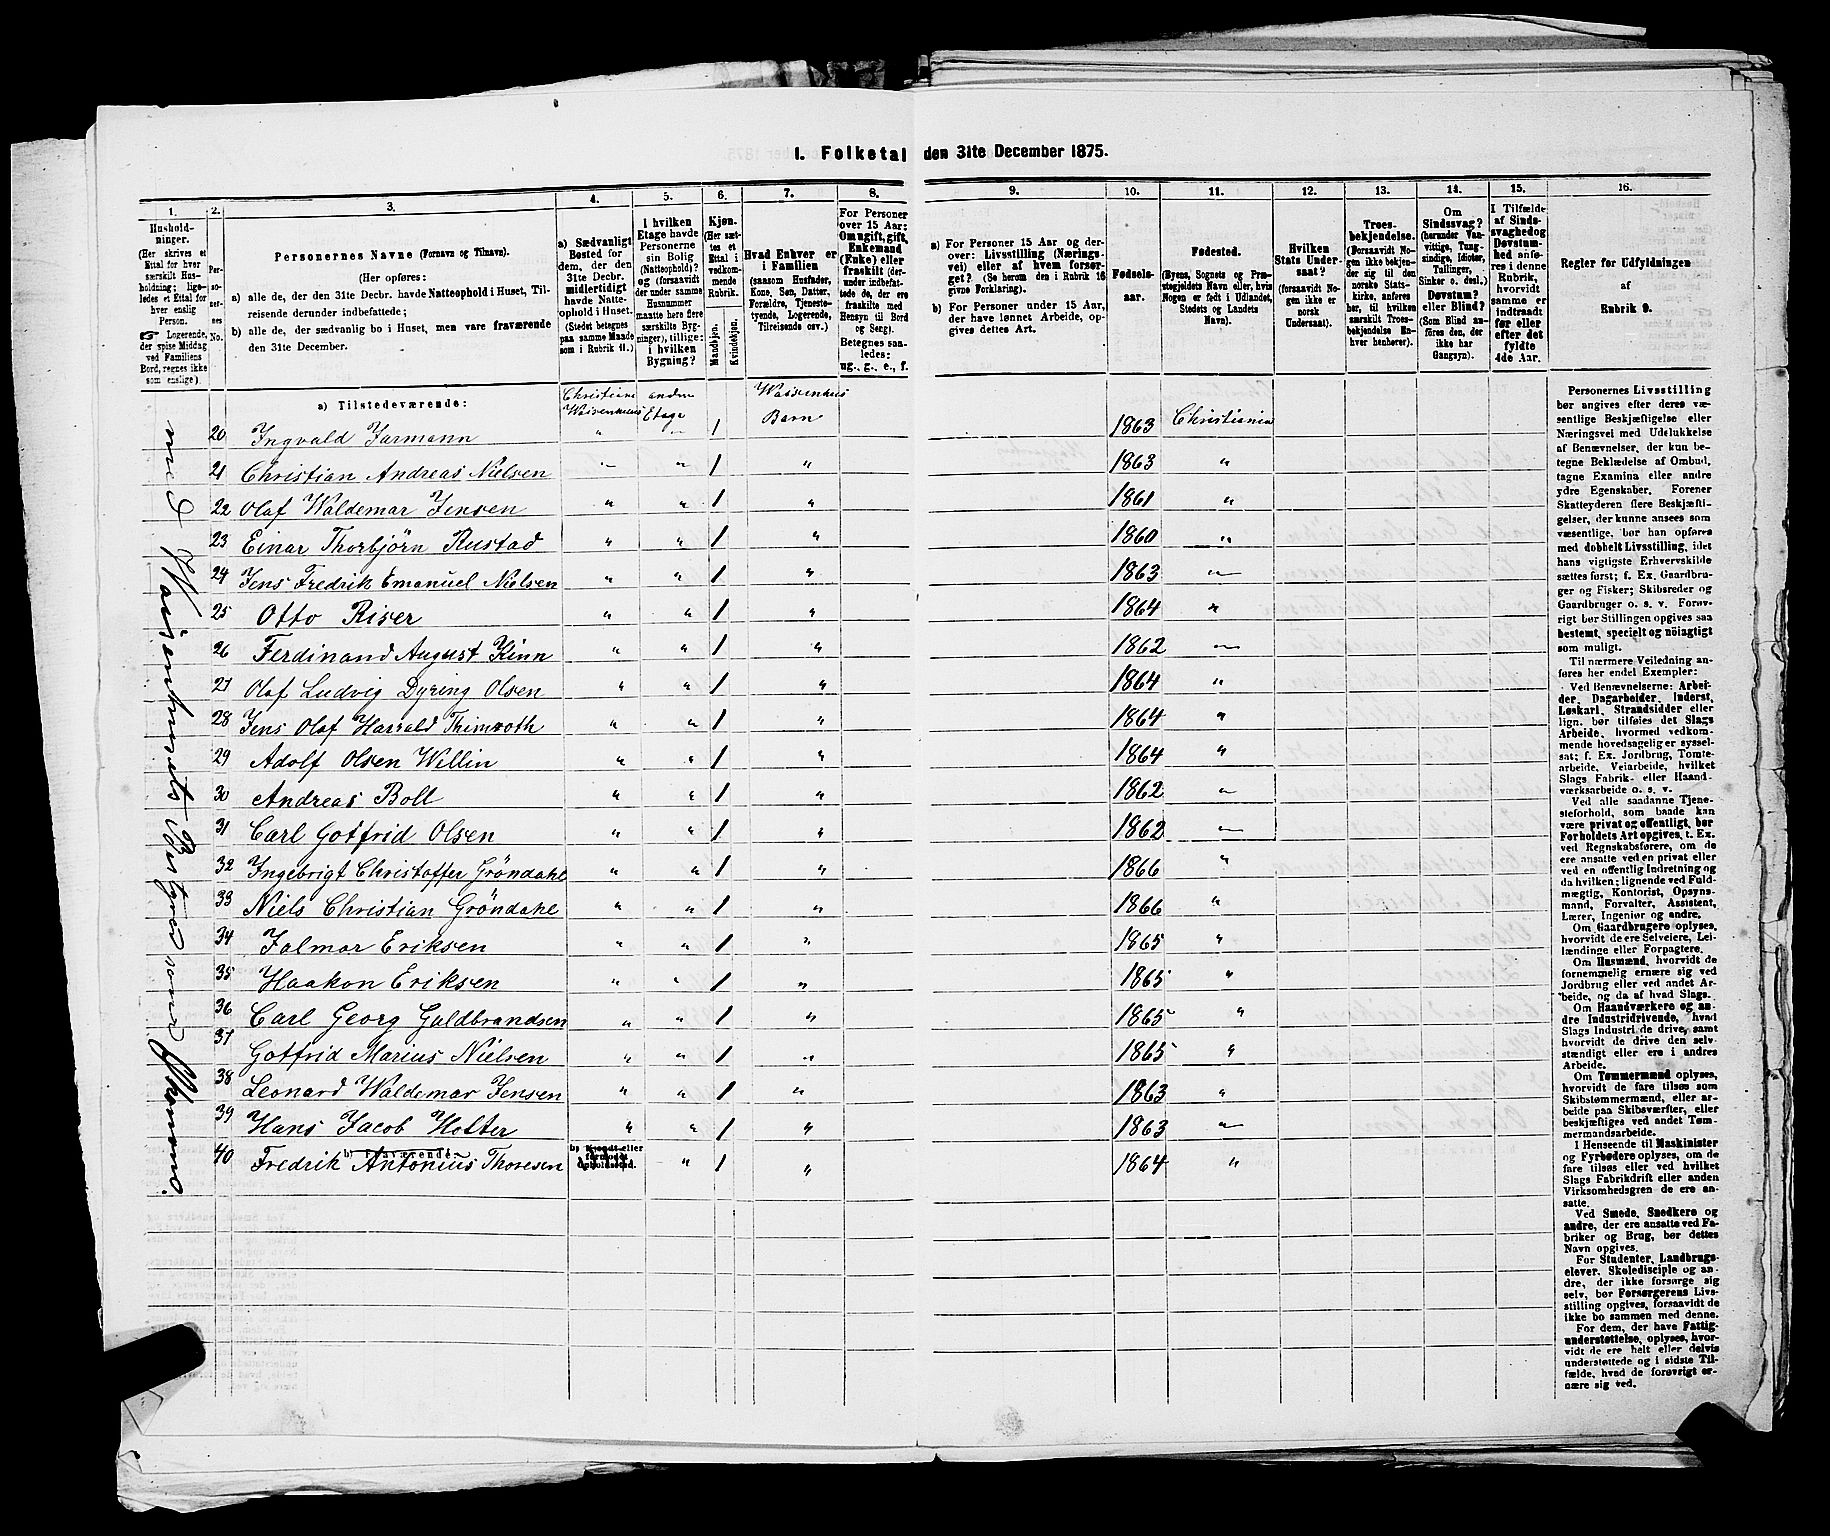 I. Folketal den 31te December 1875.
1. 2. 3. 4. 5. 6. 7. 8. 9. 10. 11. 12. 13. 14. 15. 16.
Husholdninger.
(Her skrives et
Ettal for hver
særskilt Husholdning;
ligeledes et Ettal for
hver enslig
Person.
Logerende,
der spise Middag
ved Familiens
Bord, regnes ikke
som enslige).
Personernes No.
Personernes Navne (Fornavn og Tilnavn).
(Her opføres:
a) alle de, der den 31te Decbr. havde Natteophold i Huset, Tilreisende
derunder indbefattede;
b) alle de, der sædvanlig bo i Huset, men vare fraværende
den 31te December.
a) Sædvanligt
Bosted for
dem, der den
31te Decbr.
midlertidigt
havde Natteophold
i Huset.
(Stedet betegnes
paa samme Maade
som i Rubrik 11.)
I hvilken
Etage havde
Personerne
sin Bolig
(Natteophold)?
og (forsaavidt
der under samme
Husnummer
maatte høre flere
særskilte Bygninger),
tillige:
i hvilken
Bygning?
Kjøn.
(Her sættes
et
Ettal i
vedkommende
Rubrik.
Mandkjøn.
Kvindekjøn.
Hvad Enhver er
i Familien
(saasom Husfader,
Kone, Søn, Datter,
Forældre, Tjenestetyende,
Logerende,
Tilreisende osv.)
For Personer
over 15 Aar:
Om ugift, gift,
Enkemand
(Enke) eller
fraskilt (derunder
indbefattede
de, der ere
fraskilte med
Hensyn til Bord
og Seng).
Betegnes saaledes:
ug., g., e., f.
a) For Personer 15 Aar og derover:
Livsstilling (Næringsvei)
eller af hvem forsørget?
(Se herom den i Rubrik 16
givne Forklaring).
b) For Personer under 15 Aar,
der have lønnet Arbeide, opgives
dettes Art.
Fødselsaar.
Fødested.
(Byens, Sognets og Præstegjeldets
Navn eller, hvis
Nogen er født i Udlandet,
Stedets og Landets
Navn).
Hvilken
Stats Undersaat?
(forsaavidt
Nogen ikke er
norsk
Undersaat).
Troesbekjendelse.
(Forsaavidt Nogen
ikke bekjender
sig til den
norske Statskirke,
anføres
her, til hvilken
særskilt Troesbekjendelse
Enhver
henhører).
Om
Sindssvag?
(herunder Vanvittige,
Tungsindige,
Idioter,
Tullinger,
Sinker o. desl.)
Døvstum?
eller Blind?
(Som Blind anføres
den, der
ikke har
Gangsyn).
I Tilfælde
af Sindssvaghed
og
Døvstumhed
anføres
i denne
Rubrik,
hvorvidt
samme er
indtraadt
før eller
efter det
fyldte
4de Aar.
Regler før Udfyldningen
af
Rubrik 9.
a) Tilstedeværende: Christiania Waisenhuus anden Etage Waisenhus Barn
20 Ingvald Jarmann " " 1 1863 Christiania
21 Christian Andreas Nielsen " " 1 " 1863 "
22 Olaf Waldemar Jensen " " 1 " 1861 "
23 Einar Thorbjörn Rustad " " 1 " 1860 "
24 Jens Fredrik Emanuel Nielsen " " 1 " 1863 "
25 Otto Riser " " 1 " 1864 "
26 Ferdinand August Kinn " " 1 " 1862 "
27 Olaf Ludvig Dyring Olsen " " 1 " 1864 "
28 Jens Olaf Harrald Thimroth " " 1 " 1864 "
29 Adolf Olsen Willin " " 1 " 1864 "
30 Andreas Boll " " 1 " 1862 "
31 Carl Gotfrid Olsen " " 1 " 1862 "
32 Ingebrigt Christoffer Gröndahl " " 1 " 1866 "
33 Niels Christian Gröndahl " " 1 " 1866 "
34 Jalmar Eriksen " " 1 " 1865 "
35 Haakon Eriksen " " 1 " 1865 "
36 Carl Georg Guldbrandsen " " 1 " 1865 "
37 Gotfrid Marius Nielsen " " 1 " 1865 "
38 Leonard Waldemar Jensen " " 1 " 1863 "
39 Hans Jacob Hotter " " 1 " 1863 "
b) Fraværende: b) Kjendt eller formodet Opholdssted.
40 Fredrik Antonius Thoresen " 1 " 1864 "
med Waisenhusets Bestyrer som
Personernes Livsstilling
bør angives efter deres væsentlige
Beskjæftigelse eller
Næringsvei med Udelukkelse
af Benævnelser, der kun betegne
Beklædelse af Ombud,
tagne Examina eller andre
ydre Egenskaber. Forener
Skatteyderen flere Beskjæftigelser,
der kunne ansees som
væsentlige, bør han opføres
med dobbelt Livsstilling, idet
hans vigtigste Erhvervskilde
sættes først; f. Ex. Gaardbruger
og Fisker; Skibsreder og
Gaardbruger o. s. v. Forøvrigt
bør Stillingen opgives saa
bestemt, specielt og nöiagtigt
som muligt.
Til nærmere Veiledning anføres
her endel Exempler:
Ved Benævnelserne: Arbeider,
Dagarbeider, Inderst,
Løskarl, Strandsidder eller
lign. bør tilføies det Slags
Arbeide, hvormed vedkommende
hovedsagelig er sysselsat;
f. Ex. Jordbrug, Tomtearbeide,
Veiarbeide, hvilket
Slags Fabrik- eller Haandværksarbeide
o. s. v.
Ved alle saadanne Tjenesteforhold,
som baade kan
være privat og offentligt, bør
Forholdets Art opgives, t. Ex.
ved Regnskabsførere, om de
ere ansatte ved en privat eller
ved en offentlig Indretning og
da hvilken; lignende ved Fuldmægtig,
Kontorist, Opsynsmand,
Forvalter, Assistent,
Lærer, Ingeniør og andre.
Om Gaardbrugere oplyses,
hvorvidt de ere Selveiere, Leilændinge
eller Forpagtere.
Om Husmænd, hvorvidt de
fornemmelig ernære sig ved
Jordbrug eller ved andet Arbeide,
og da af hvad Slags.
Om Haandværkere og andre
Industridrivende, hvad
Slags Industri de drive, samt
hvorvidt de drive den selvstændigt
eller ere i andres
Arbeide.
Om Tømmermænd oplyses,
hvorvidt de fare tilsøs som
Skibstømmermænd, eller arbeide
paa Skibsværfter, eller
beskjæftiges ved andet Tømmermandsarbeide.
I Henseende til Maskinister
og Fyrbødere oplyses, om de
fare tilsøs eller ved hvilket
Slags Fabrikdrift eller anden
Virksomhedsgren de ere ansatte.
Ved Smede, Snedkere og
andre, der ere ansatte ved Fabriker
og Brug, bør dettes
Navn opgives.
For Studenter, Landbrugselever,
Skoledisciple og andre,
der ikke forsørge sig
selv, bør Forsørgerens Livsstilling
opgives, forsaavidt de
ikke bo sammen med denne.
For dem, der have Fattigunderstøttelse,
oplyses, hvorvidt
de ere helt eller delvis
understøttede og i sidste Tilfælde,
hvad de forøvrigt ernære
sig ved.